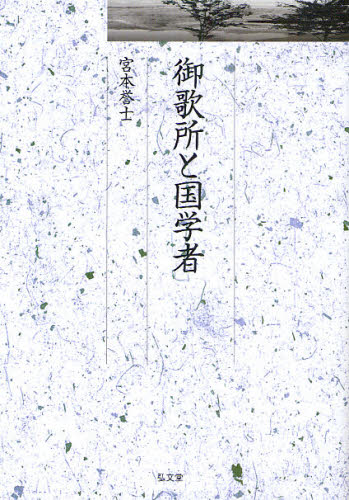 御歌所と国学者
宮本誉士
弘文堂